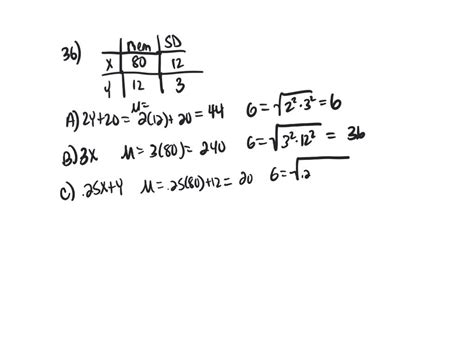 36) Mean SD
x 80 12
y 12 3
A) 2y+20 μ= 2(12)+20 = 44 σ=√2²·3² = 6
B) 3x μ= 3(80)= 240 σ=√3²·12² = 36
C) .25x+y μ=.25(80)+12= 20 σ=√.2